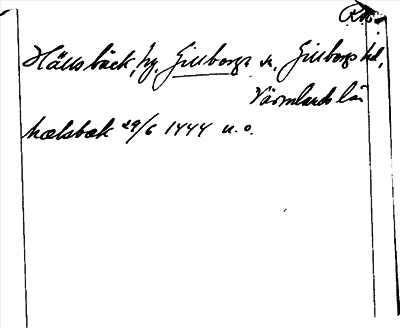 Hällsbäck, hg. Gillberga sn. Gillbergs hd,
Värmlands län
hælsbæk 29/6 1444 u. o.